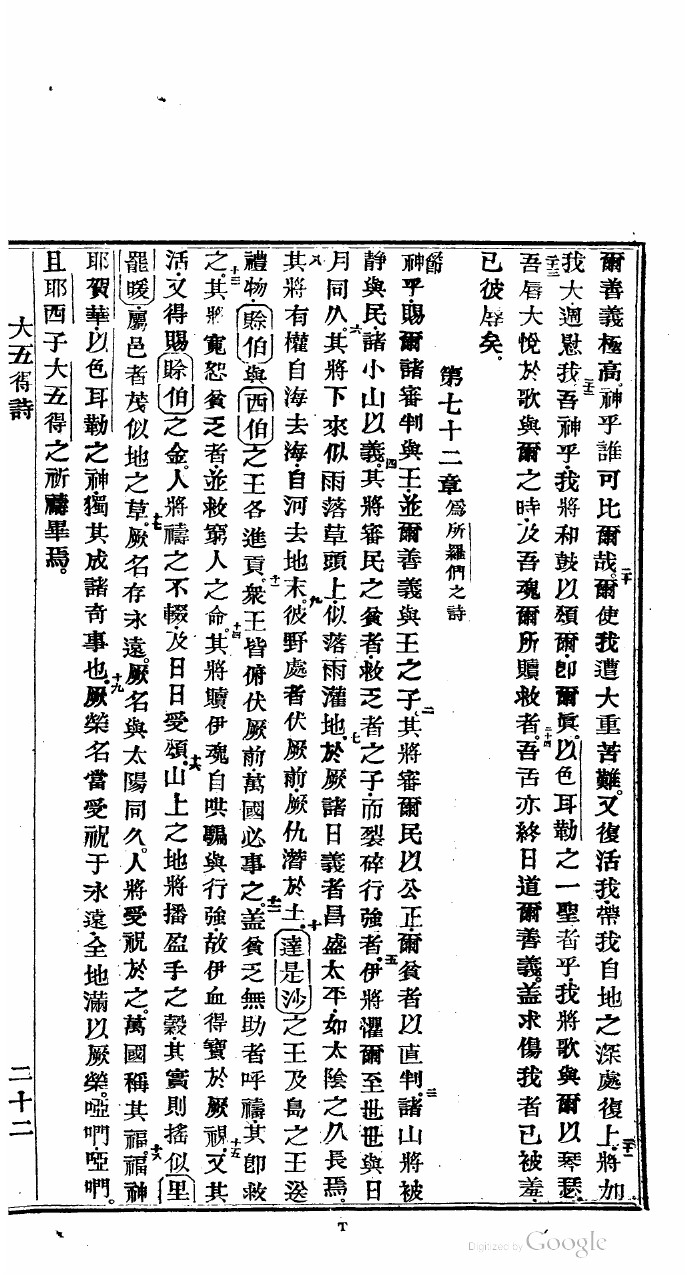 爾善義極高。神乎誰可比爾哉。二十爾使我遭大重苦難。又復活我、帶我自地之深處復上。二十一將加
我大、週慰我。二十二吾神乎、我將和鼓以頌爾、卽爾眞。以色耳勒之一聖者乎、我將歌與爾以琴瑟。
二十三吾唇大悅於歌與爾之時、及吾魂爾所贖救者。二十四吾舌亦終日道爾善義。盖求傷我者已被羞、
已彼辱矣。
第七十二章 爲所羅們之詩
一節神乎、賜爾諸審判與王、並爾善義與王之子。二其將審爾民以公正、爾貧者以直判。三諸山將被
靜與民、諸小山以義。四其將審民之貧者、救乏者之子、而裂碎行強者。五伊將懼爾至世世、與日
月同久。六其將下來似雨落草頭上、似落雨灌地。七於厥諸日義者昌盛太平、如太陰之久長焉。
八其將有權自海去海、自河去地末。九彼野處者伏厥前、厥仇潛於土。十達是沙之王及島之王送
禮物、賒伯與西伯之王各進貢。十一衆王皆俯伏厥前、萬國必事之。十二盖貧乏無助者呼禱、其卽救
之。十三其將寬恕貧乏者、並救窮人之命。十四其將贖伊魂自哄騙與行強、故伊血得寶於厥視。十五又其
活、又得賜賒伯之金。人將禱之不輟、及日日受頌。十六山上之地將播盈手之穀、其實則搖似里
罷暖、屬邑者茂似地之草。十七厥名存永遠。厥名與太陽同久。人將受祝於之。萬國稱其福。十八福神
耶賀華、以色耳勒之神、獨其成諸奇事也。十九厥榮名當受祝于永遠、全地滿以厥榮。啞們、啞們。
且耶西子大五得之祈禱畢焉。
大五得詩
二十二
T
Digitized by Google